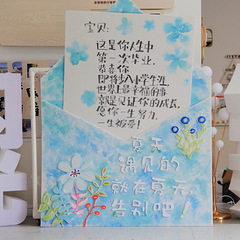 宝贝:
这是你人生中
第一次毕业,
恭喜你
即将步入小学生涯,
世界上最幸福的事
就是见证你的成长,
愿你一生努力,
一生被爱!
夏天
遇见的
就在夏天,
告别吧!